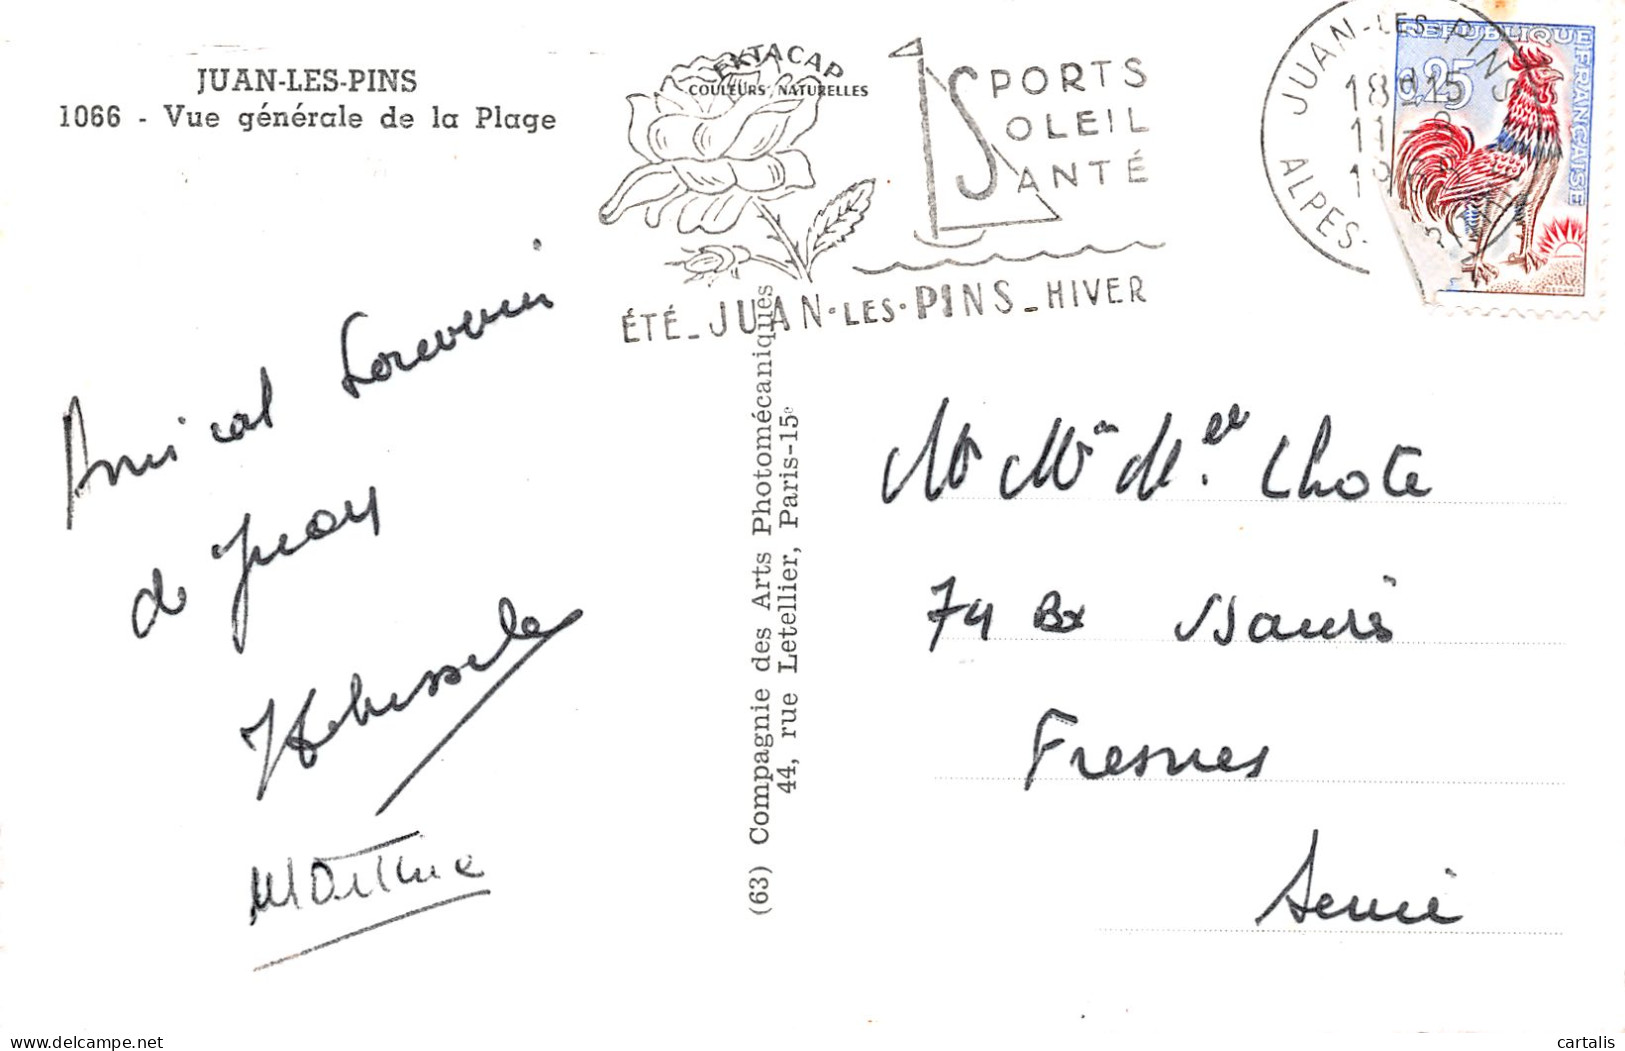 JUAN-LES-PINS
1066 - Vue générale de la Plage
EKTACAP
COULEURS NATURELLES
SPORTS
SOLEIL
SANTÉ
ÉTÉ_JUAN·LES·PINS_HIVER
JUAN-LES-PINS
18H15
11
ALPES-
REPUBLIQUE FRANÇAISE
0,25
DECARIS
Amical Souvenir
de Juan
(63) Compagnie des Arts Photomécaniques
44, rue Letellier, Paris-15e
Mr Mme Melle Chote
74 Bx
Fresnes
Seine
cartalis